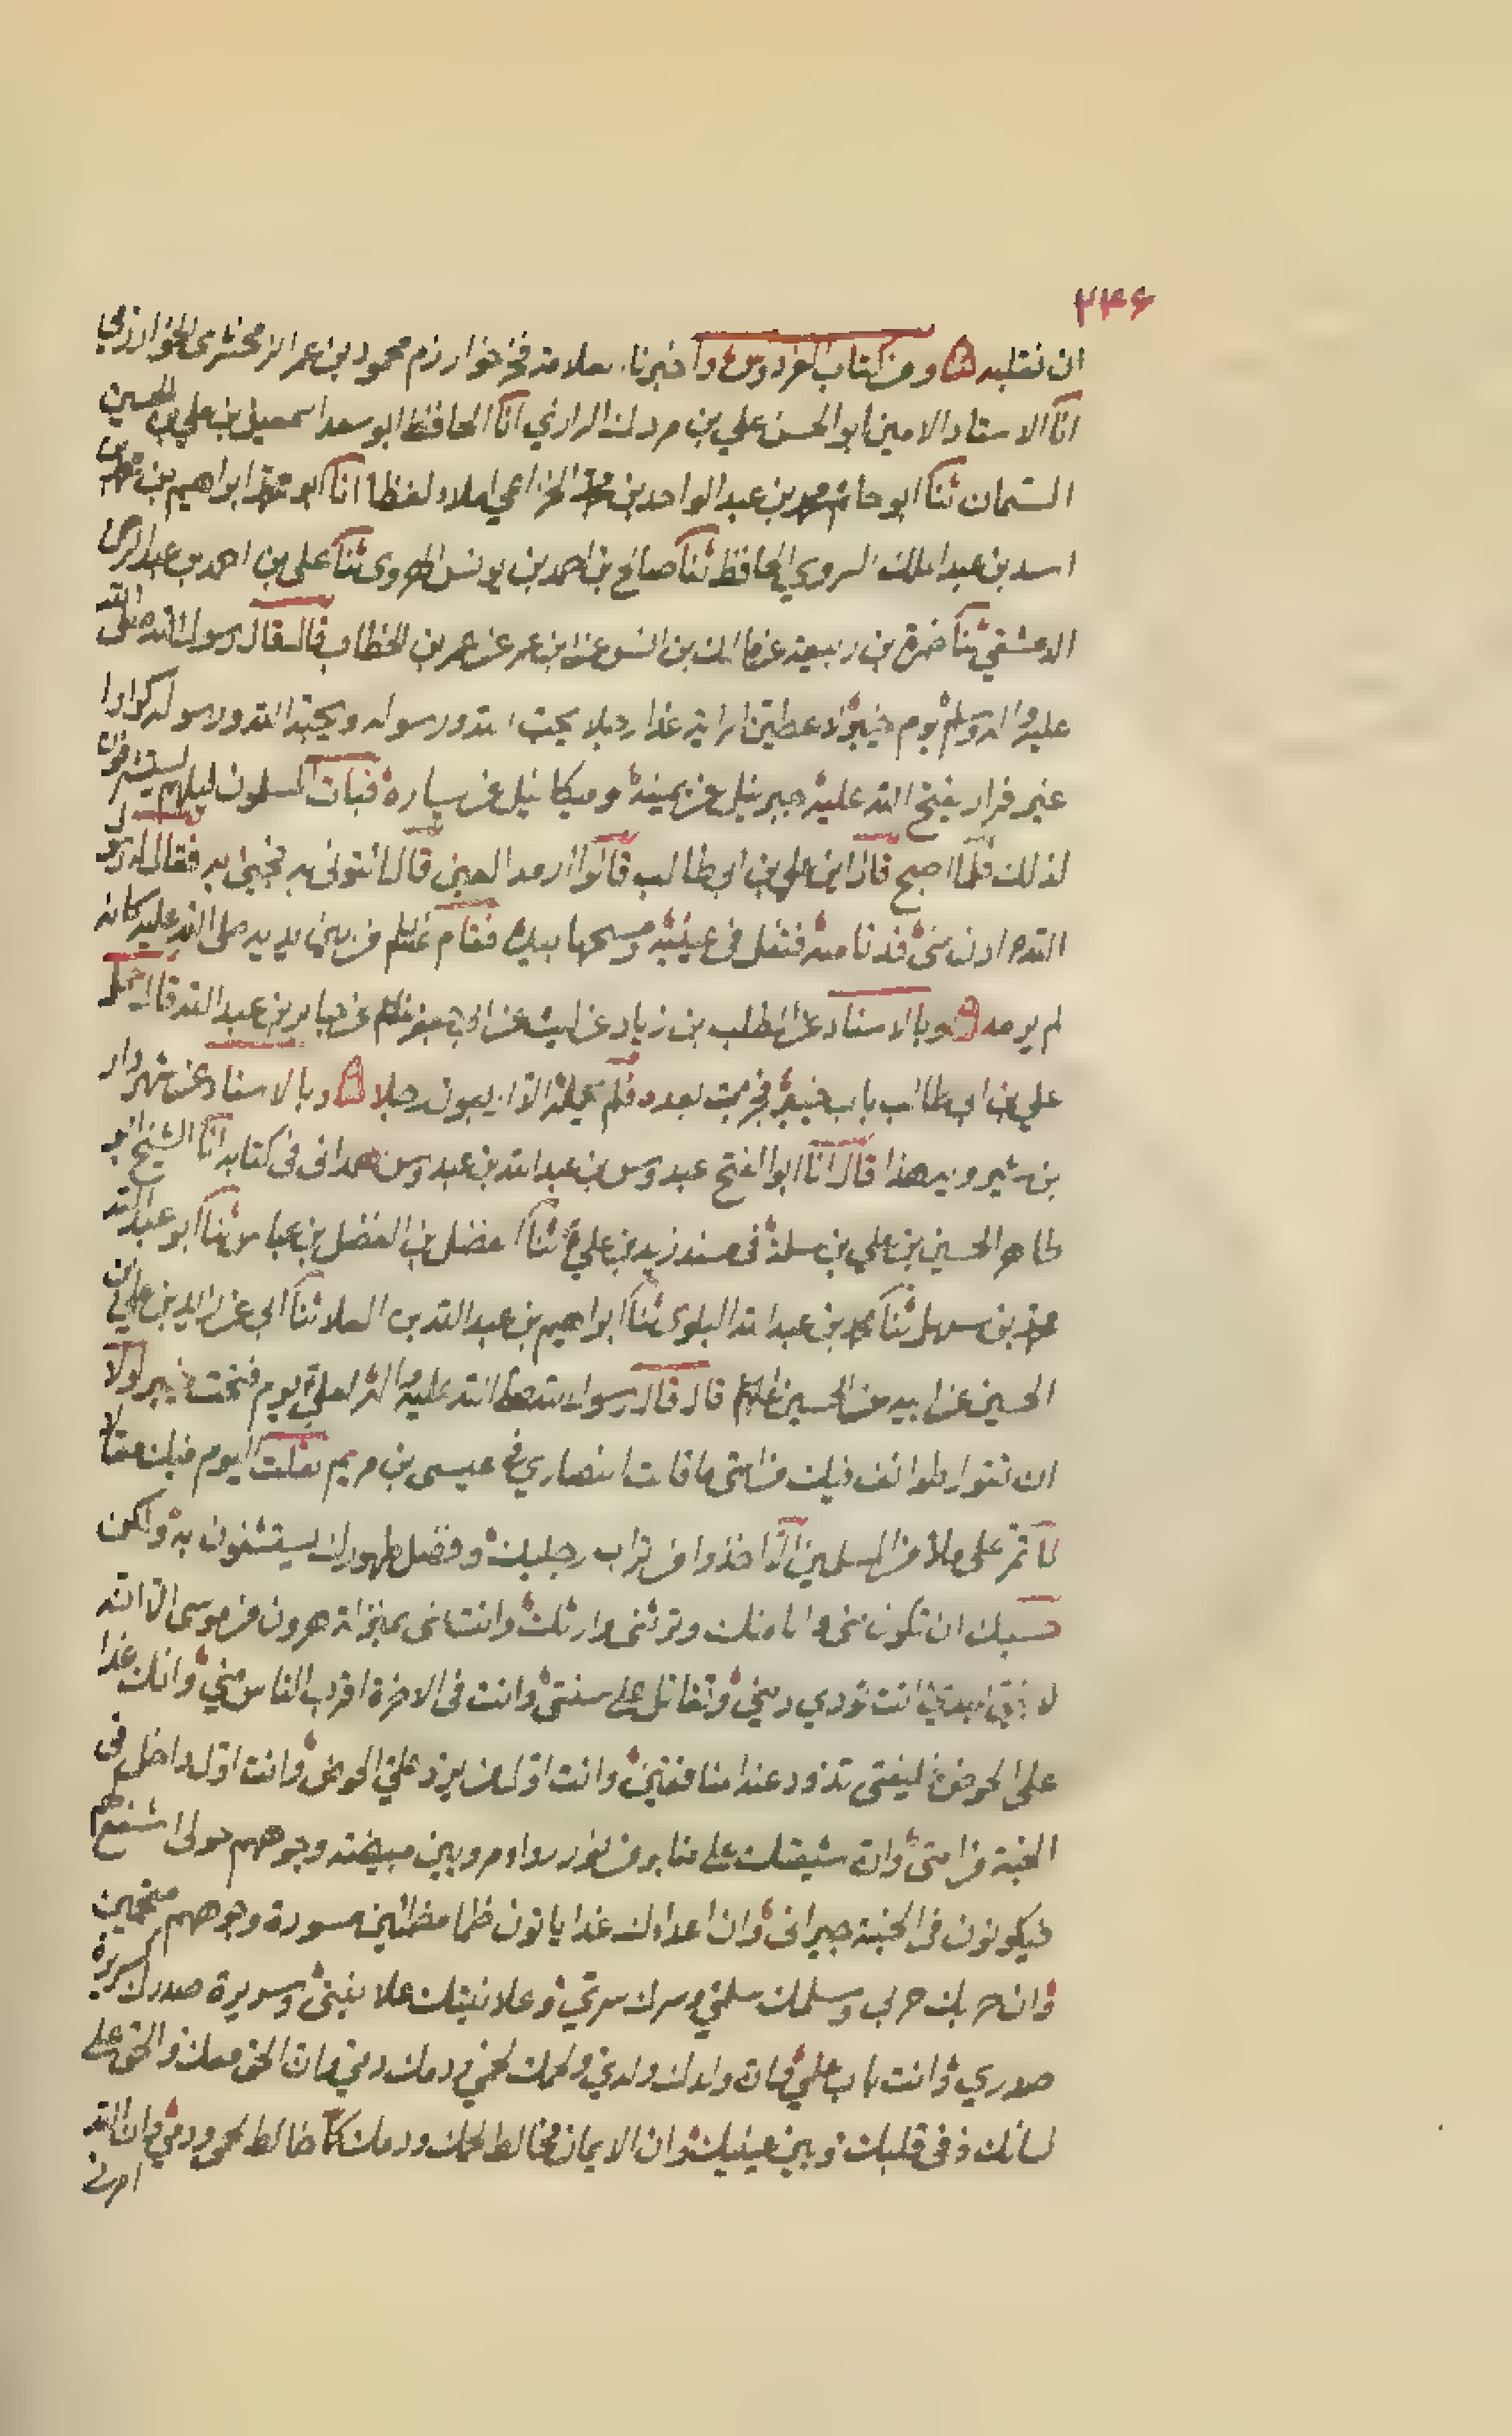 ٢٣۶
ان نقلبه ومن كتاب الفردوس واخبرنا العلامة فخر خوارزم محمود بن عمر الزمخشري الخوارزمي
انا الاستاد الامين ابو الحسن علي بن مردك الرازي انا الحافظ ابو سعد اسمعيل بن علي بن الحسين
السمان ثنا ابو حاتم محمد بن عبد الواحد بن محمد الخزاعي املاء لفظا انا ابو محمد ابراهيم بن محمد بن
اسد بن عبد الملك الروي الحافظ ثنا صالح بن احمد بن يونس الهروي ثنا علي بن احمد بن عبد الرحمن
الدمشقي ثنا ضمرة بن ربيعة عن مالك بن انس عن ابن عمر عن عمر بن الخطاب قال قال رسول الله صلى الله
عليه واله وسلم يوم خيبر لاعطين الراية غدا رجلا يحب الله ورسوله ويحبه الله ورسوله كرارا
غير فرار يفتح الله عليه جبرئيل عن يمينه وميكائيل عن يساره فبات المسلمون ليلهم يستشرفون
لذلك فلما اصبح قال اين علي بن ابي طالب قالوا ارمد العين قال ائتوني به فجيئ به فقال له رسول
الله ادن مني فدنا منه فتفل في عينيه ومسحها بيده فقام علي من بين يديه صلى الله عليه كانه
لم يرمد وبالاسناد عن المطلب بن زياد عن ليث عن ابي جعفر عن جابر بن عبد الله قال حمل
علي بن ابي طالب باب خيبر فجربت بعده فلم يحمله الا اربعون رجلا وبالاسناد عن شهردار
بن شيرويه هذا قال انا ابو الفتح عبدوس بن عبد الله بن عبدوس همداني في كتابه انا الشيخ ابو
طاهر الحسين بن علي بن سلمة في مسند زيد بن علي ثنا الفضل بن الفضل بن عباس ثنا ابو عبد الله
محمد بن سهل ثنا محمد بن عبد الله البلوي ثنا ابراهيم بن عبد الله بن العلا ثنا ابي عن زيد بن علي بن
الحسين عن ابيه عن الحسين قال قال رسول الله صلى الله عليه واله لعلي يوم فتحت خيبر لولا
ان تقول طوائف فيك من امتى ما قالت النصاري في عيسى بن مريم لقلت اليوم فيك مقالا
لا تمر على ملأ من المسلمين الا اخذوا من تراب رجليك وفضل طهورك يستشفون به ولكن
حسبك ان تكون مني وانا منك وترثنى وارثك وانت منى بمنزلة هرون من موسى الا انه
لا نبي بعدي انت تؤدي ديني وتقاتل على سنتى وانت فى الاخرة اقرب الناس مني وانك غدا
على الحوض خليفتى تذود عنه المنافقين وانت اول من يرد علي الحوض وانت اول داخل فى
الجنة من امتى وان شيعتك على منابر من نور رواء مرويين مبيضة وجوههم حولى اشفع لهم
فيكونون فى الجنة جيرانى وان اعداءك غدا ياتون ظما مظمئين مسودة وجوههم مقمحين
وان حربك حربي وسلمك سلمي وسرك سري وعلانيتك علانيتى وسريرة صدرك سريرة
صدري وانت باب علمي وان ولدك ولدي ولحمك لحمي ودمك دمي وان الحق معك والحق على
لسانك وفي قلبك وبين عينيك وان الايمان مخالط لحمك ودمك كما خالط لحمي ودمي وان الله
امرني